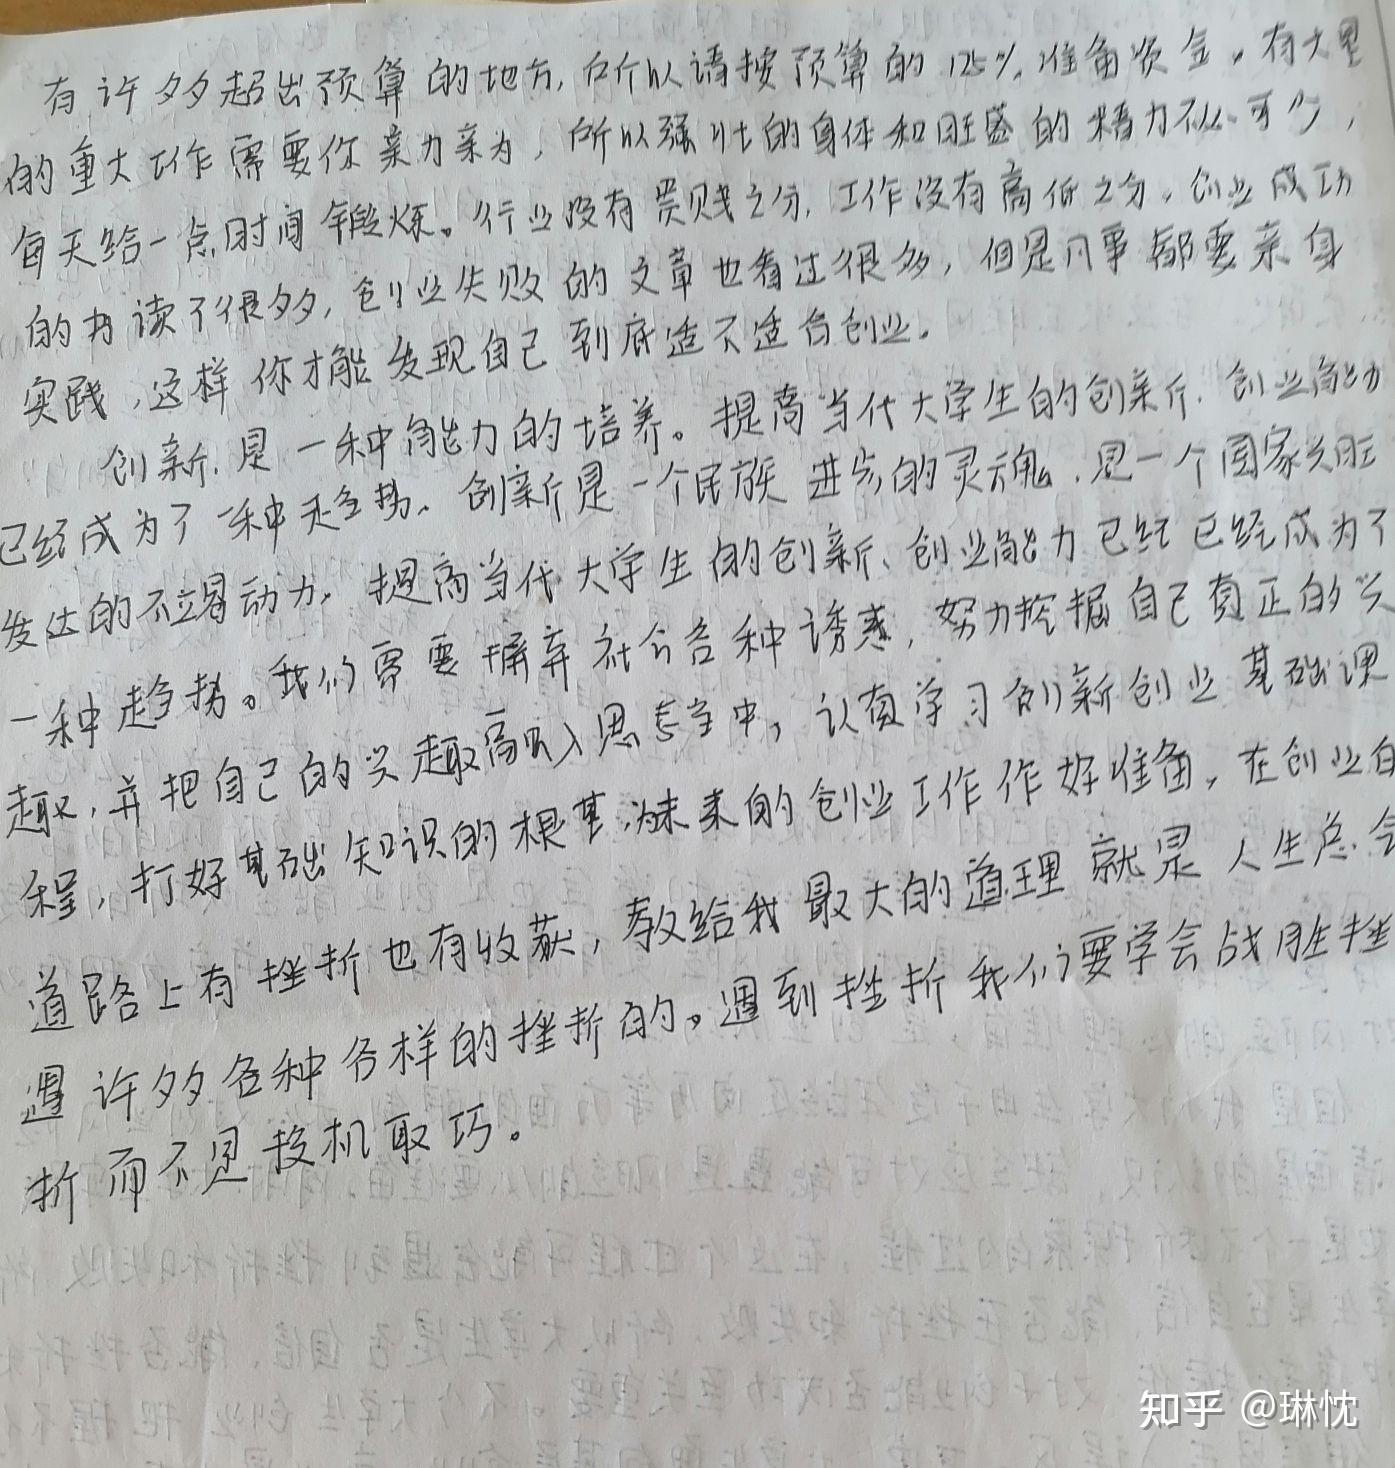 有许多超出预算的地方，所以请按预算的125%准备资金。有大量
的重大工作需要你亲力亲为，所以强壮的身体和旺盛的精力不可少，
每天给一点时间锻炼。行业没有贵贱之分，工作没有高低之分。创业成功
的书读了很多，创业失败的文章也看过很多，但是凡事都要亲身
实践，这样你才能发现自己到底适不适合创业。
创新是一种能力的培养。提高当代大学生的创新、创业能力
已经成为了一种趋势。创新是一个民族进步的灵魂，是一个国家兴旺
发达的不竭动力。提高当代大学生的创新、创业能力已经已经成为了
一种趋势。我们需要摒弃社会各种诱惑，努力挖掘自己真正的兴
趣，并把自己的兴趣融入思态当中，认真学习创新创业基础课
程，打好基础知识的根基，为未来的创业工作作好准备，在创业的
道路上有挫折也有收获，教给我最大的道理就是人生总会
遇许多各种各样的挫折的。遇到挫折我们要学会战胜挫
折而不是投机取巧。
知乎 @琳忱